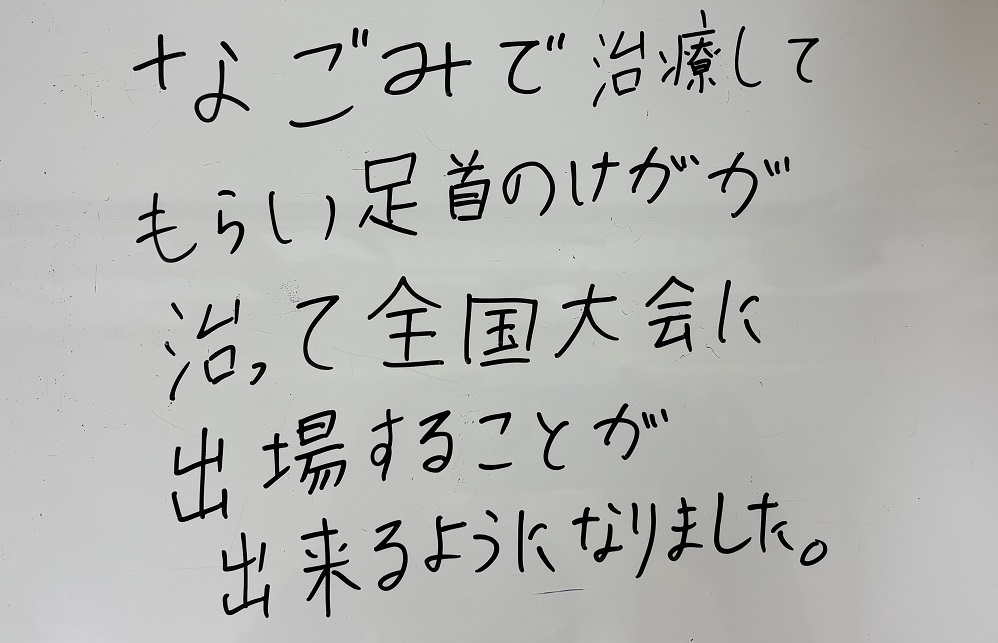 なごみで治療して
もらい足首のけがが
治って全国大会に
出場することが
出来るようになりました。